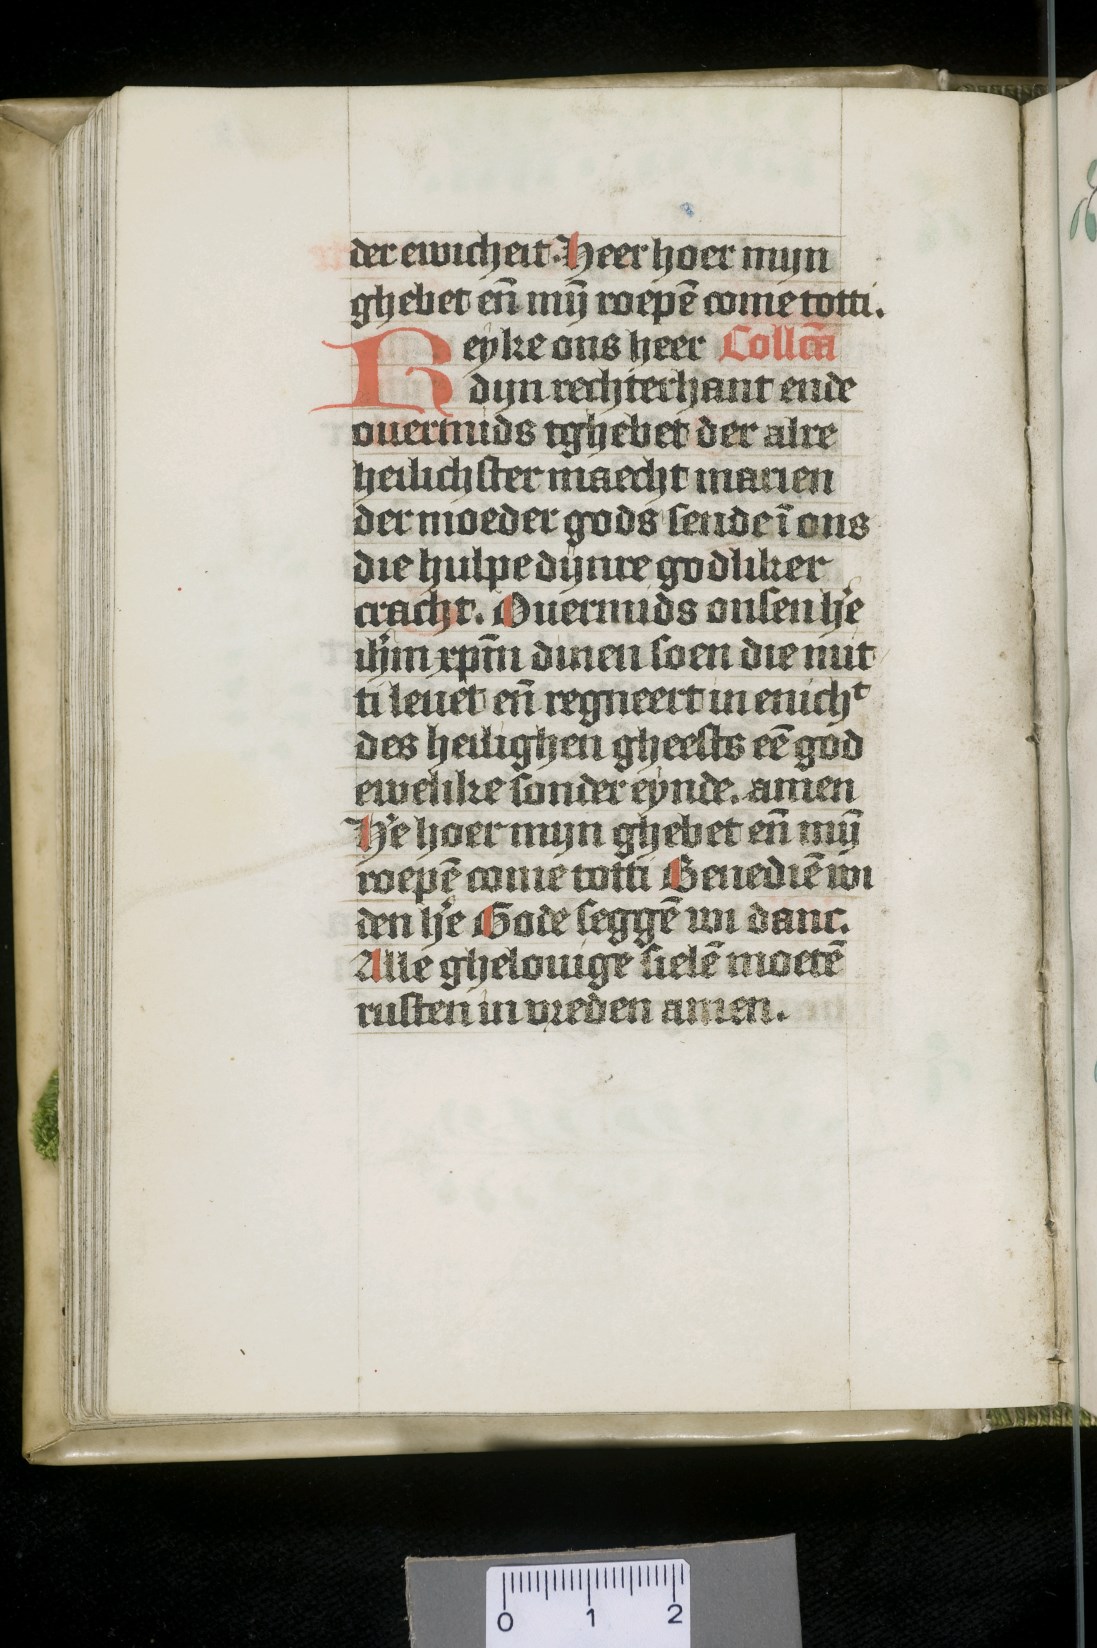 der ewicheit. Heer hoer mijn
ghebet en̄ mȳ roepē come totti.
Reyke ons heer Collc̄a
dijn rechterhant ende
ouermids tghebet der alre
heilichster maecht marien
der moeder gods sende ī ons
die hulpe dijnre godliker
cracht. Ouermids onsen h̓e
ih̓m xp̄m dinen soen die mit
ti leuet en̄ regneert in enichᵗ
des heilighen gheests eē god
ewelike sonder eynde. amen
H̓e hoer mijn ghebet en̄ mȳ
roepē come totti Benediē wi
den h̓e Gode seggē wi danc.
Alle ghelouige sielē moetē
rusten in vreden amen.
0 1 2